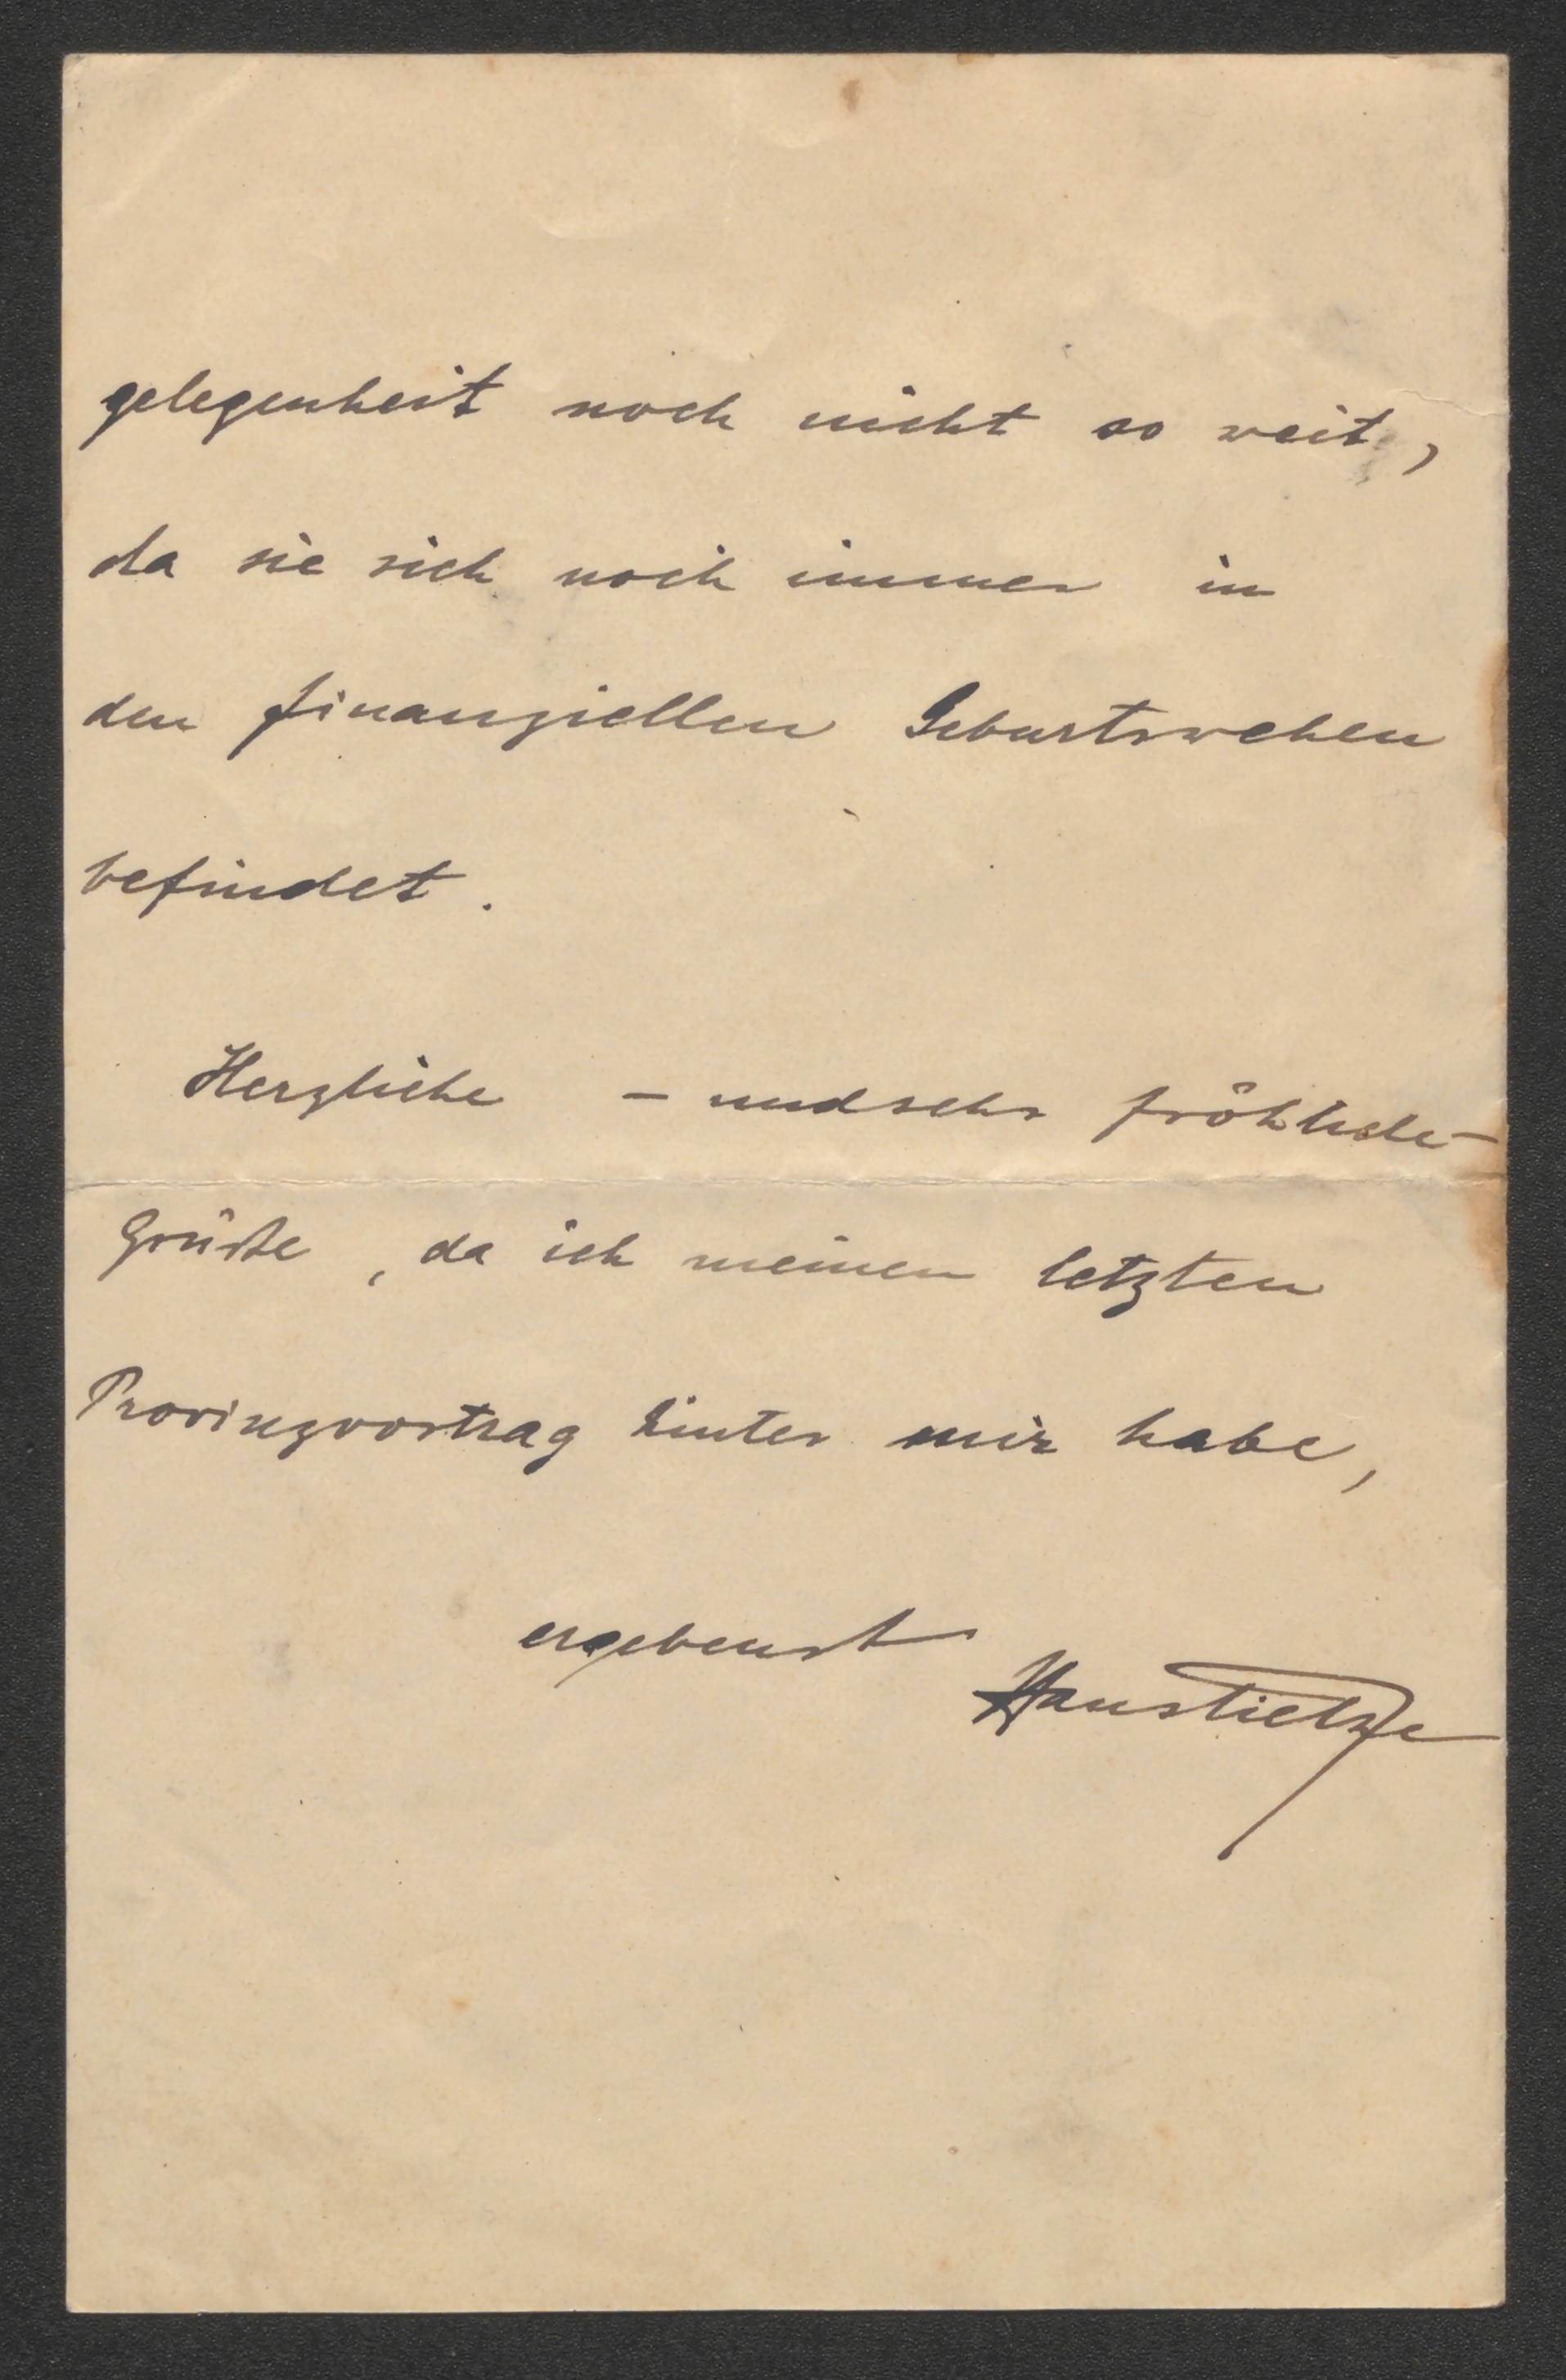 gelegenheit noch nicht so weit,
da sie sich noch immer in
den finanziellen Geburtswehen
befindet.
Herzliche – und sehr fröhliche –
Grüße, da ich meinen letzten
Provinzvortrag hinter mir habe,
ergebenst
Hans Tietze